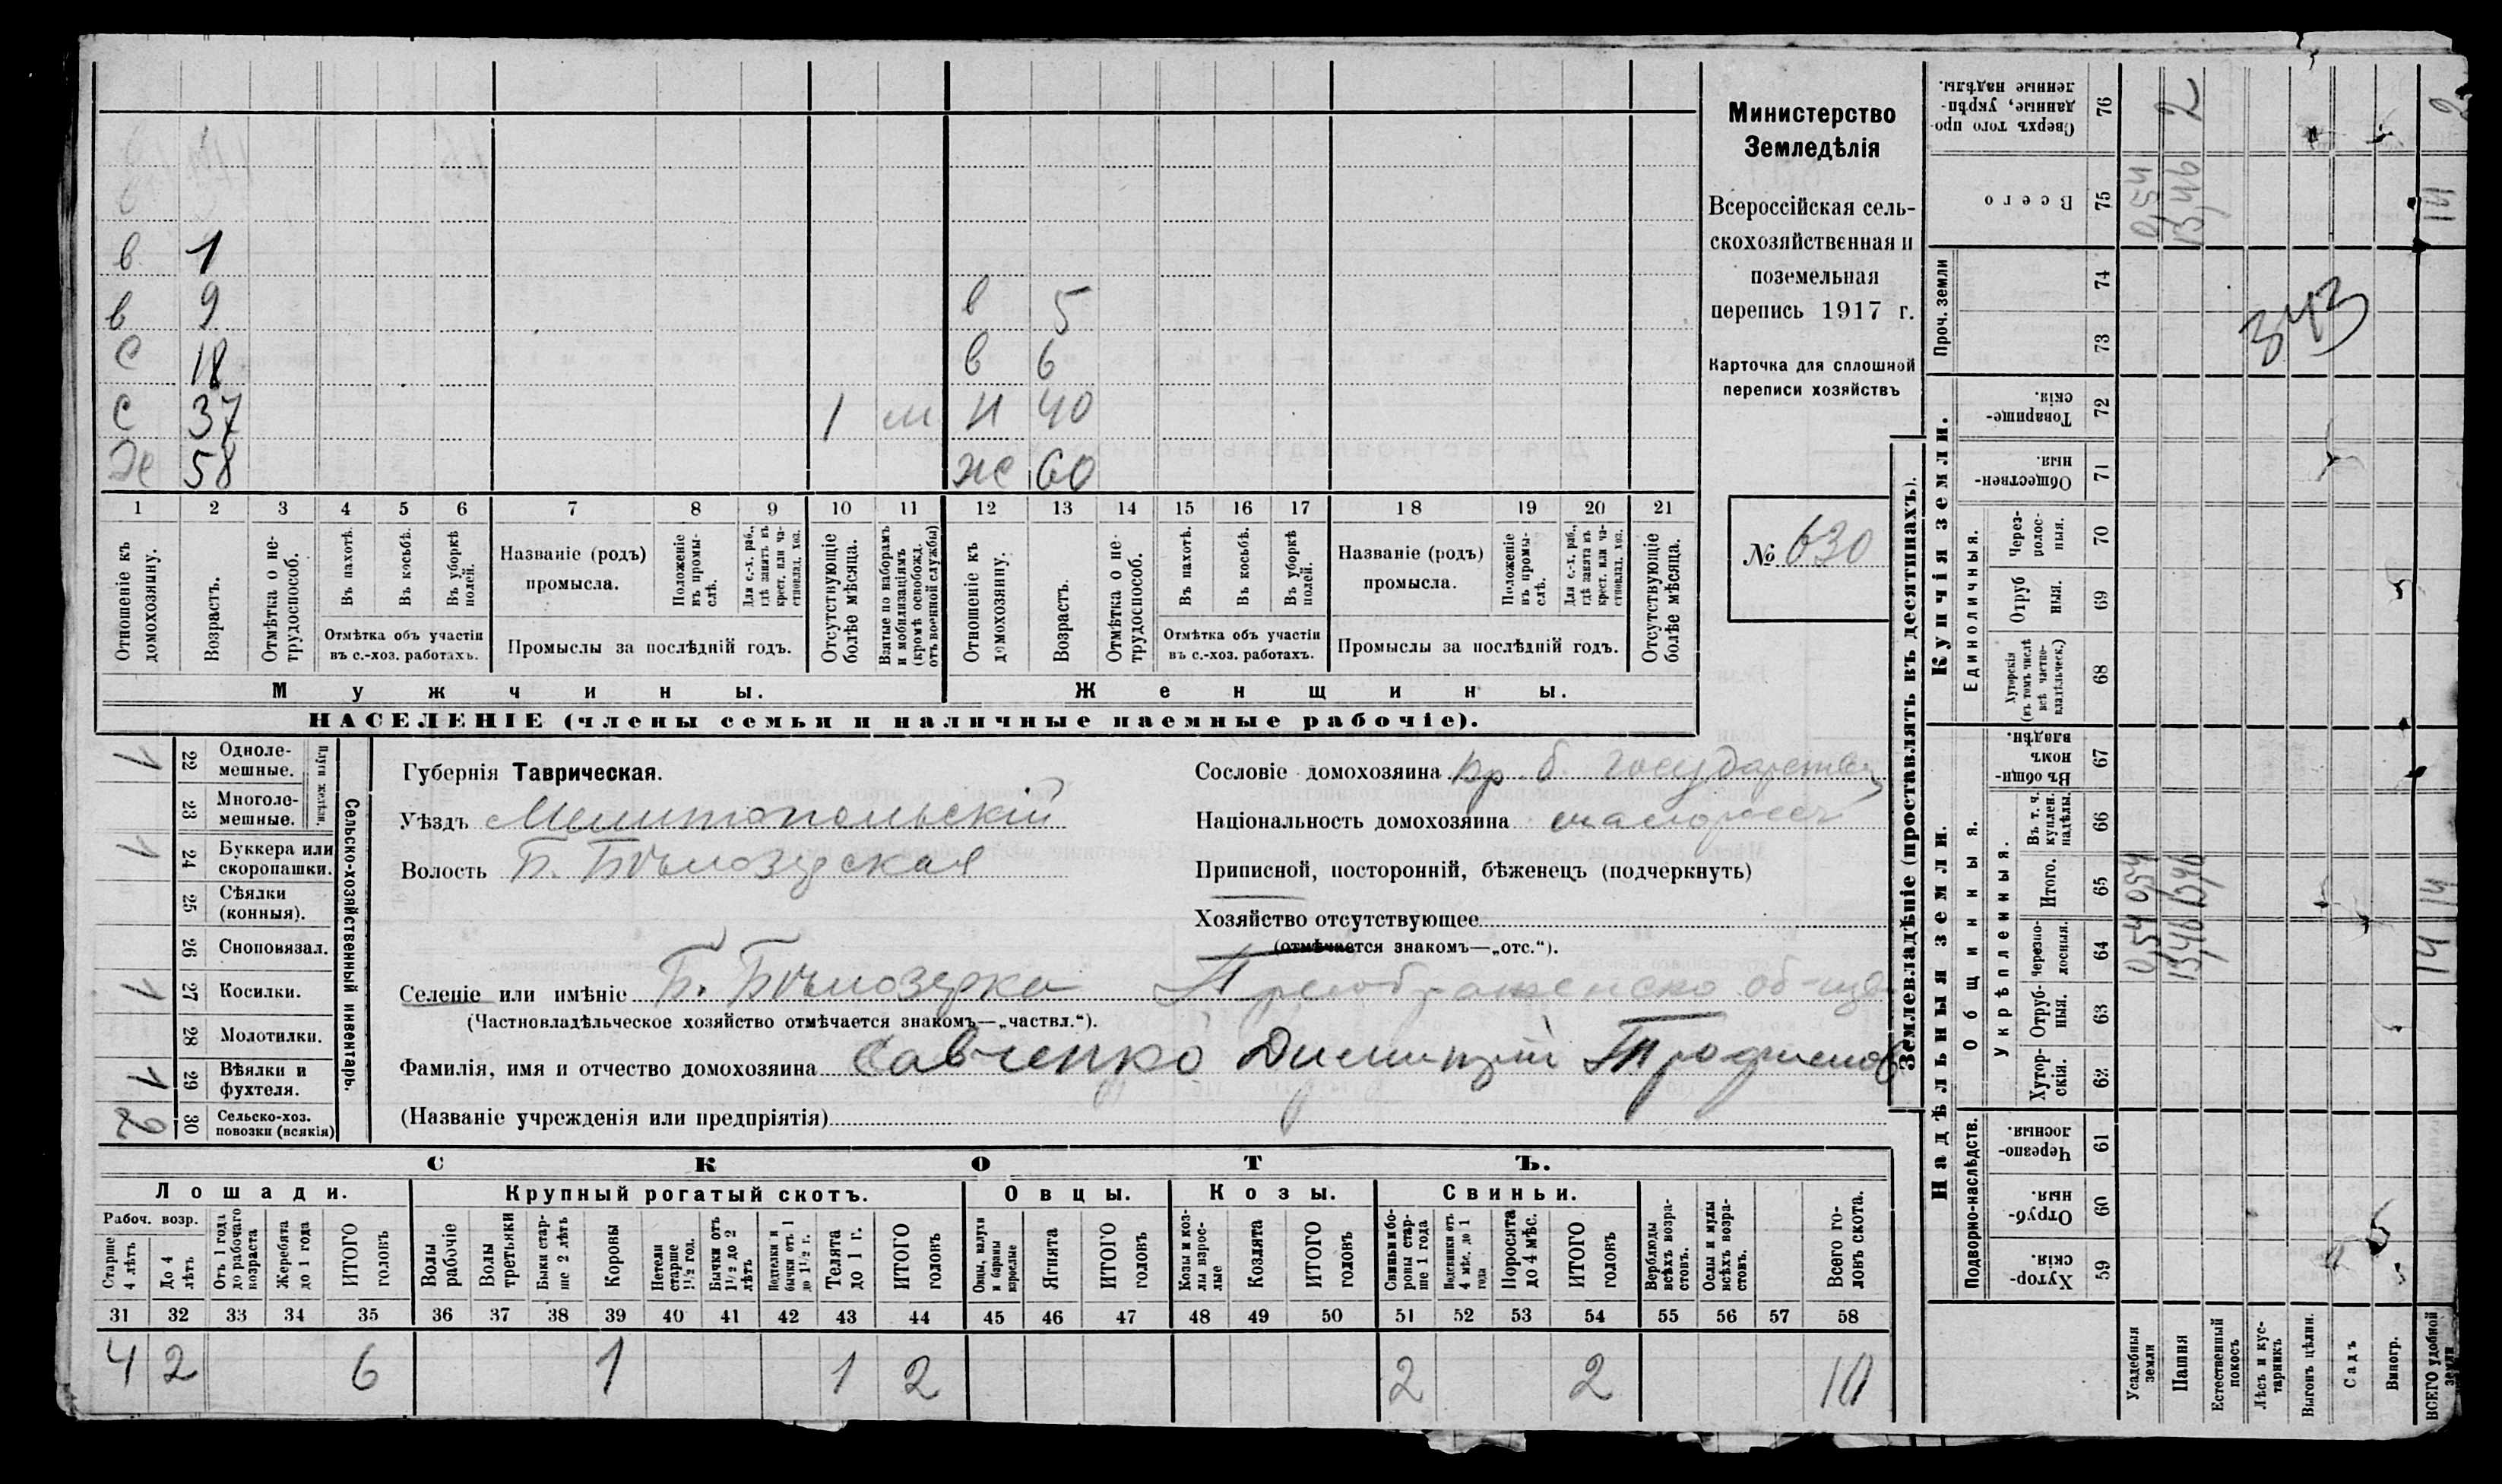 Министерство
Земледѣлія
Всероссійская сель-
скохозяйственная и
поземельная
перепись 1917 г.
Карточка для сплошной
переписи хозяйствъ
№ 630
в 1
в 9 в 5
С 18 в 6
С 37 1 м Н 40
Ж 58 Ж 60
1 2 3 4 5 6 7 8 9 10 11 12 13 14 15 16 17 18 19 20 21
Отношеніе къ домохозяину.
Возрастъ.
Отмѣтка о не-трудоспособ.
Въ пахотѣ.
Въ косьбѣ.
Въ уборкѣ полей.
Отмѣтка объ участіи
въ с.-хоз. работахъ.
Названіе (родъ)
промысла.
Положеніе въ промы-слѣ.
Для с.-х. раб., гдѣ занятъ въ крест. или ча-стновлад. хоз.
Промыслы за послѣдній годъ.
Отсутствующіе болѣе мѣсяца.
Взятые по наборамъ и мобилизаціямъ (кромѣ освобожд. отъ военной службы)
Отношеніе къ домохозяину.
Возрастъ.
Отмѣтка о не-трудоспособ.
Въ пахотѣ.
Въ косьбѣ.
Въ уборкѣ полей.
Отмѣтка объ участіи
въ с.-хоз. работахъ.
Названіе (родъ)
промысла.
Положеніе въ промы-слѣ.
Для с.-х. раб., гдѣ занята въ крест. или ча-стновлад. хоз.
Промыслы за послѣдній годъ.
Отсутствующіе болѣе мѣсяца.
Мужчины. Женщины.
НАСЕЛЕНІЕ (члены семьи и наличные наемные рабочіе).
Сельско-хозяйственный инвентарь.
Плуги желѣзн.
22 Однолемешные. 1
23 Многолемешные.
24 Буккера или скоропашки. 1
25 Сѣялки (конныя).
26 Сноповязал.
27 Косилки. 1
28 Молотилки.
29 Вѣялки и фухтеля. 1
30 Сельско-хоз. повозки (всякія) 2
Губернія Таврическая.
Уѣздъ Мелитопольскій
Волость Б. Бѣлозерская
Селеніе или имѣніе Б. Бѣлозерка Преображенско об-ще
(Частновладѣльческое хозяйство отмѣчается знакомъ—„частвл.“).
Фамилія, имя и отчество домохозяина Савченко Димитрій Трофимов
(Названіе учрежденія или предпріятія)
Сословіе домохозяина кр. б. государствен
Національность домохозяина малоросс
Приписной, посторонній, бѣженецъ (подчеркнуть)
Хозяйство отсутствующее
(отмѣчается знакомъ—„отс.“).
СКОТЪ.
Лошади. Крупный рогатый скотъ. Овцы. Козы. Свиньи.
Рабоч. возр.
Старше 4 лѣтъ
До 4 лѣтъ
Отъ 1 года до рабочаго возраста
Жеребята до 1 года
ИТОГО головъ
Волы рабочіе
Волы третьяки
Быки стар-ше 2 лѣтъ
Коровы
Нетели старше 1½ год.
Бычки отъ 1½ до 2 лѣтъ
Подтелки и бычки отъ 1 до 1½ г.
Телята до 1 г.
ИТОГО головъ
Овцы, валухи и бараны взрослые
Ягнята
ИТОГО головъ
Козы и коз-лы взрос-лые
Козлята
ИТОГО головъ
Свиньи и бо-ровы стар-ше 1 года
Подсвинки отъ 4 мѣс. до 1 года
Поросята до 4 мѣс.
ИТОГО головъ
Верблюды всѣхъ возра-стовъ.
Ослы и мулы всѣхъ возра-стовъ.
Всего го-ловъ скота.
31 32 33 34 35 36 37 38 39 40 41 42 43 44 45 46 47 48 49 50 51 52 53 54 55 56 57 58
4 2 6 1 1 2 2 2 10
Землевладѣніе (проставлять въ десятинахъ).
Надѣльныя земли. Купчія земли. Проч. земли
Подворно-наслѣдств.
Общинныя.
Укрѣпленныя.
Единоличныя.
Хутор-скія. 59
Отруб-ныя. 60
Черезпо-лосныя. 61
Хутор-скія. 62
Отруб-ныя. 63
Черезпо-лосныя. 64
Итого. 65
Въ т. ч. куплен. надѣлы. 66
Въ общи-номъ владѣн. 67
Хуторскія (въ томъ числѣ всѣ частно-владѣльческ.) 68
Отруб ныя. 69
Через-полос-ныя. 70
Обществен-ныя. 71
Товарище-скія. 72
73
74
Всего 75
Сверхъ того про-данные, укрѣп-ленные надѣлы. 76
Усадебныя земли 0,54 0,54 0,54
Пашня 13,46 13,46 13,46 2
Естественный покосъ
Лѣсъ и кус-тарникъ
Выгонъ цѣлин.
Садъ
Виногр.
ВСЕГО удобной земли 14 14 14 2
343